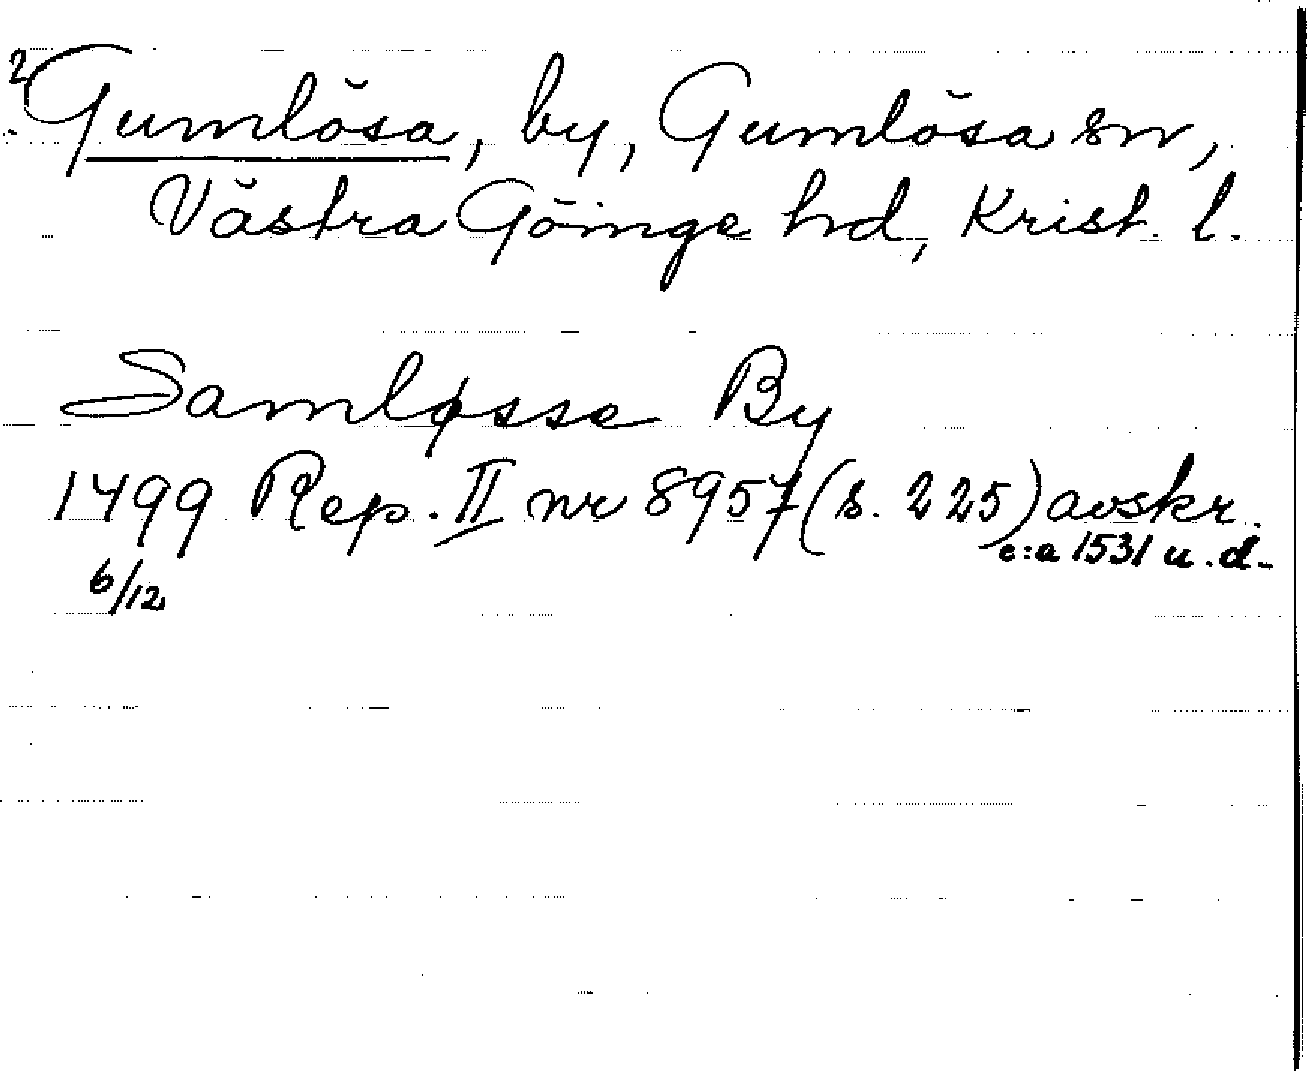 ? Gumlösa, by, Gumlösa sn,
Västra Göinge hd, Krist. l.
Samløsse By
1499 Rep. II nr 8957 (s. 225) avskr.
c:a 1531 u.d.
6/12